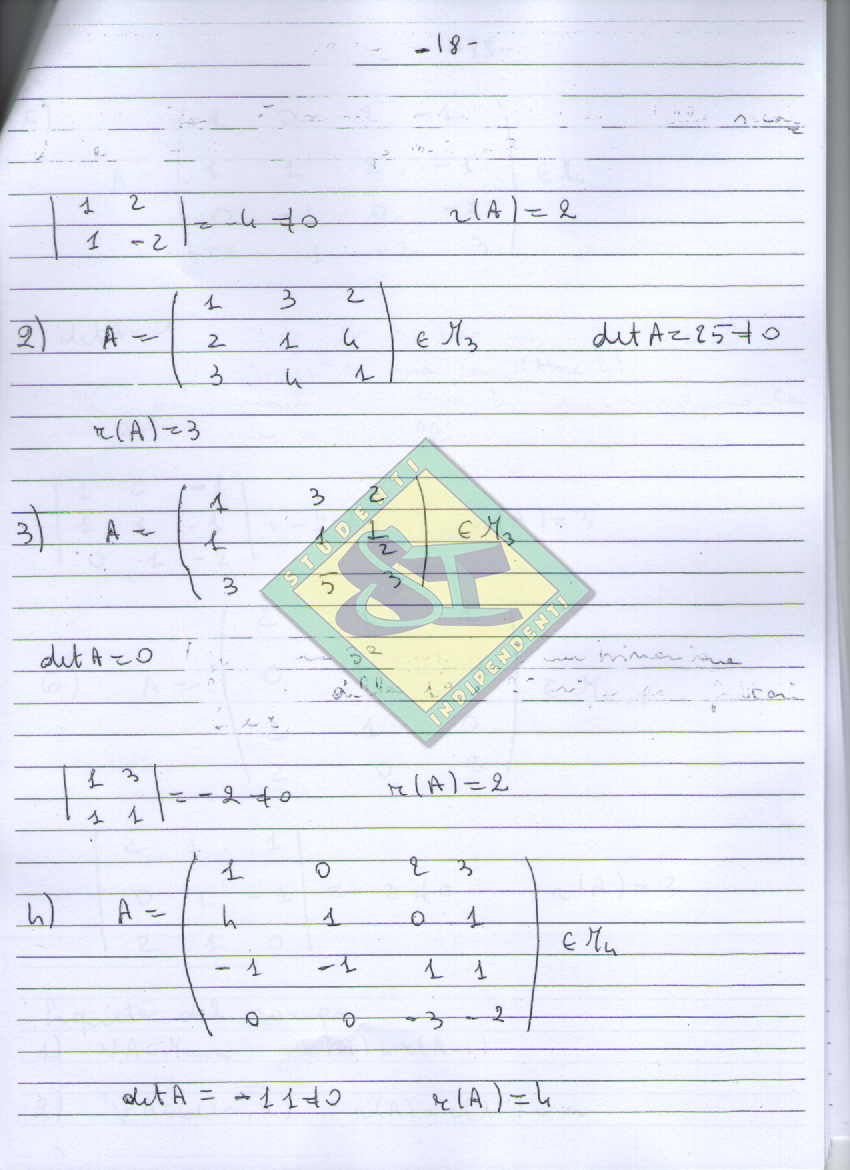 -18-
| 1 2 |
| 1 -2 | = -4 ≠ 0 r(A) = 2
2) A = ( 1 3 2
2 1 4
3 4 1 ) ∈ M3 det A = 25 ≠ 0
r(A) = 3
3) A = ( 1 3 2
1 1 1/2
3 5 3 ) ∈ M3
STUDENTI
SI
INDIPENDENTI
det A = 0 3ª
| 1 3 |
| 1 1 | = -2 ≠ 0 r(A) = 2
4) A = ( 1 0 2 3
4 1 0 1
-1 -1 1 1
0 0 -3 -2 ) ∈ M4
det A = -11 ≠ 0 r(A) = 4